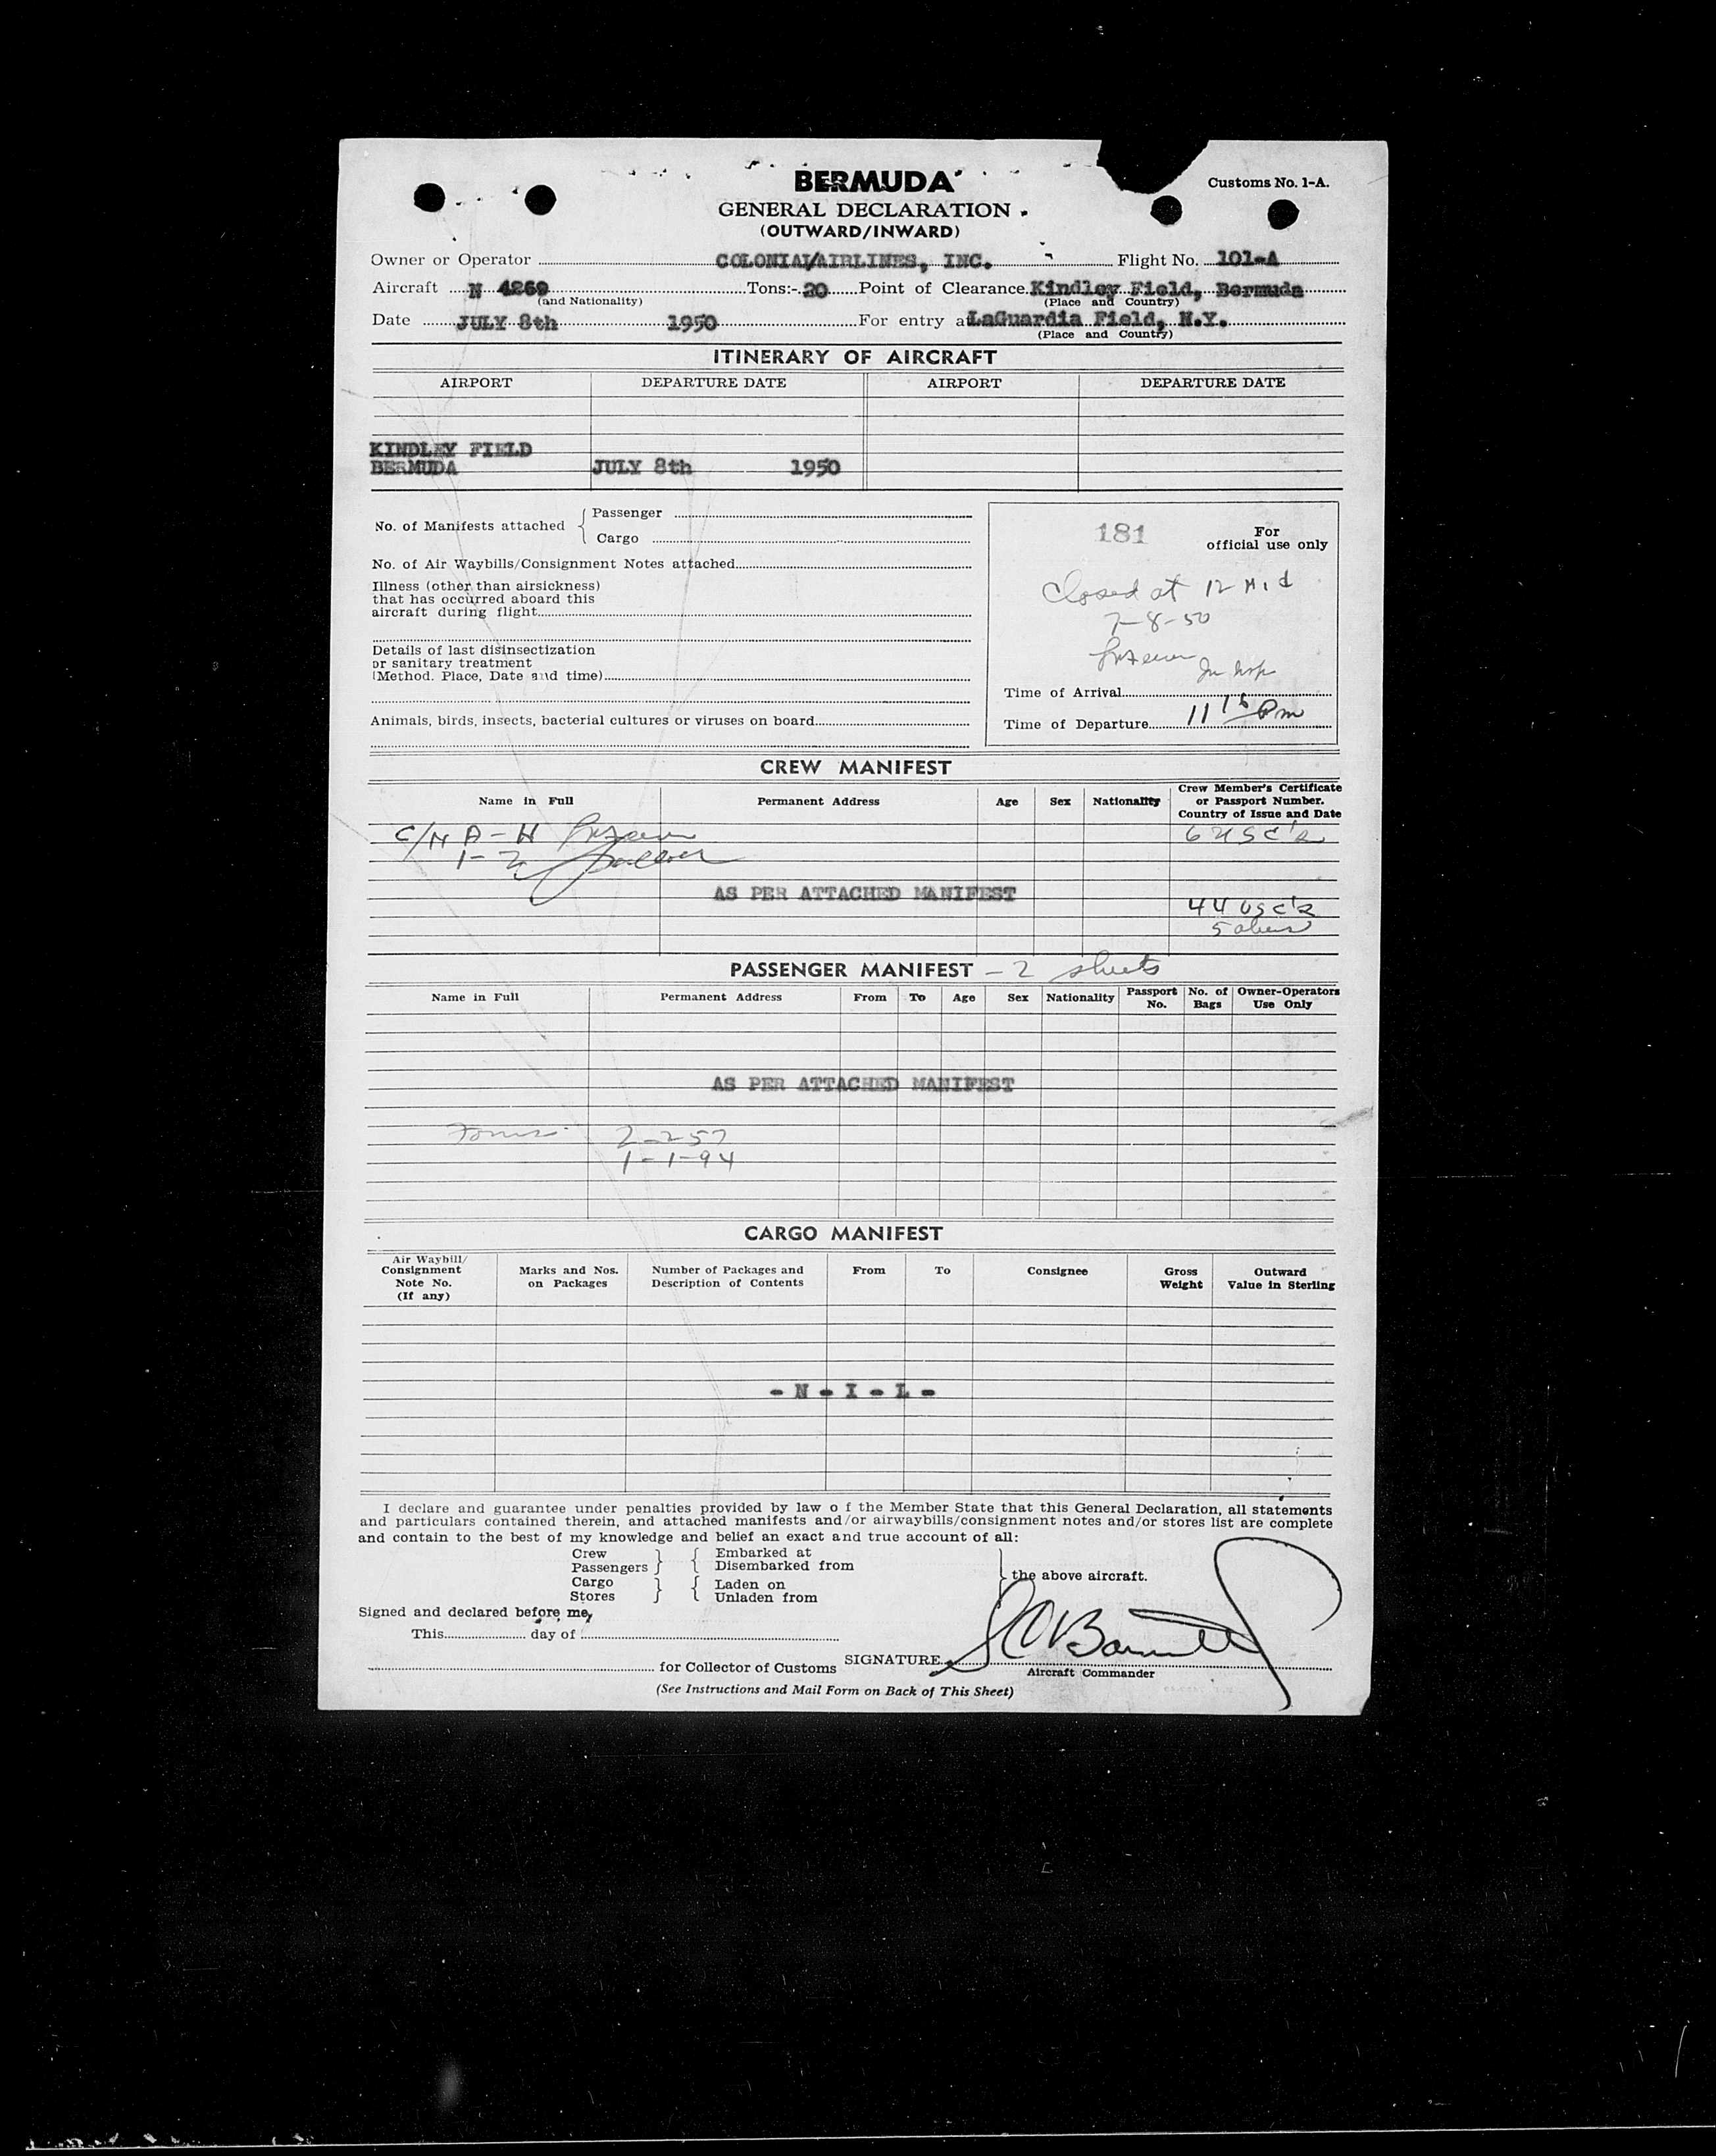 BERMUDA
Customs No. 1-A.
GENERAL DECLARATION
(OUTWARD/INWARD)
Owner or Operator COLONIAL/AIRLINES, INC. Flight No. 101-A
Aircraft N 4269 Tons:- 20 Point of Clearance Kindley Field, Bermuda
(and Nationality) (Place and Country)
Date JULY 8th 1950 For entry at LaGuardia Field, N.Y.
(Place and Country)
ITINERARY OF AIRCRAFT
AIRPORT DEPARTURE DATE AIRPORT DEPARTURE DATE
KINDLEY FIELD
BERMUDA JULY 8th 1950
No. of Manifests attached { Passenger
Cargo
No. of Air Waybills/Consignment Notes attached
Illness (other than airsickness)
that has occurred aboard this
aircraft during flight
Details of last disinsectization
or sanitary treatment
(Method. Place, Date and time)
Animals, birds, insects, bacterial cultures or viruses on board
181 For
official use only
Closed at 12 Mid
7-8-50
Time of Arrival
Time of Departure 11 16 Pm
CREW MANIFEST
Name in Full Permanent Address Age Sex Nationality Crew Member's Certificate
or Passport Number.
Country of Issue and Date
C/N A-H 6 USC's
1-Z
AS PER ATTACHED MANIFEST
44 USC's
5 aliens
PASSENGER MANIFEST - 2 sheets
Name in Full Permanent Address From To Age Sex Nationality Passport No. No. of Bags Owner-Operators Use Only
AS PER ATTACHED MANIFEST
2-257
1-1-94
CARGO MANIFEST
Air Waybill/ Consignment Note No. (If any) Marks and Nos. on Packages Number of Packages and Description of Contents From To Consignee Gross Weight Outward Value in Sterling
- N - I - L -
I declare and guarantee under penalties provided by law o f the Member State that this General Declaration, all statements
and particulars contained therein, and attached manifests and/or airwaybills/consignment notes and/or stores list are complete
and contain to the best of my knowledge and belief an exact and true account of all:
Crew } { Embarked at
Passengers } { Disembarked from
Cargo } { Laden on } the above aircraft.
Stores } { Unladen from
Signed and declared before me,
This day of
for Collector of Customs SIGNATURE
Aircraft Commander
(See Instructions and Mail Form on Back of This Sheet)